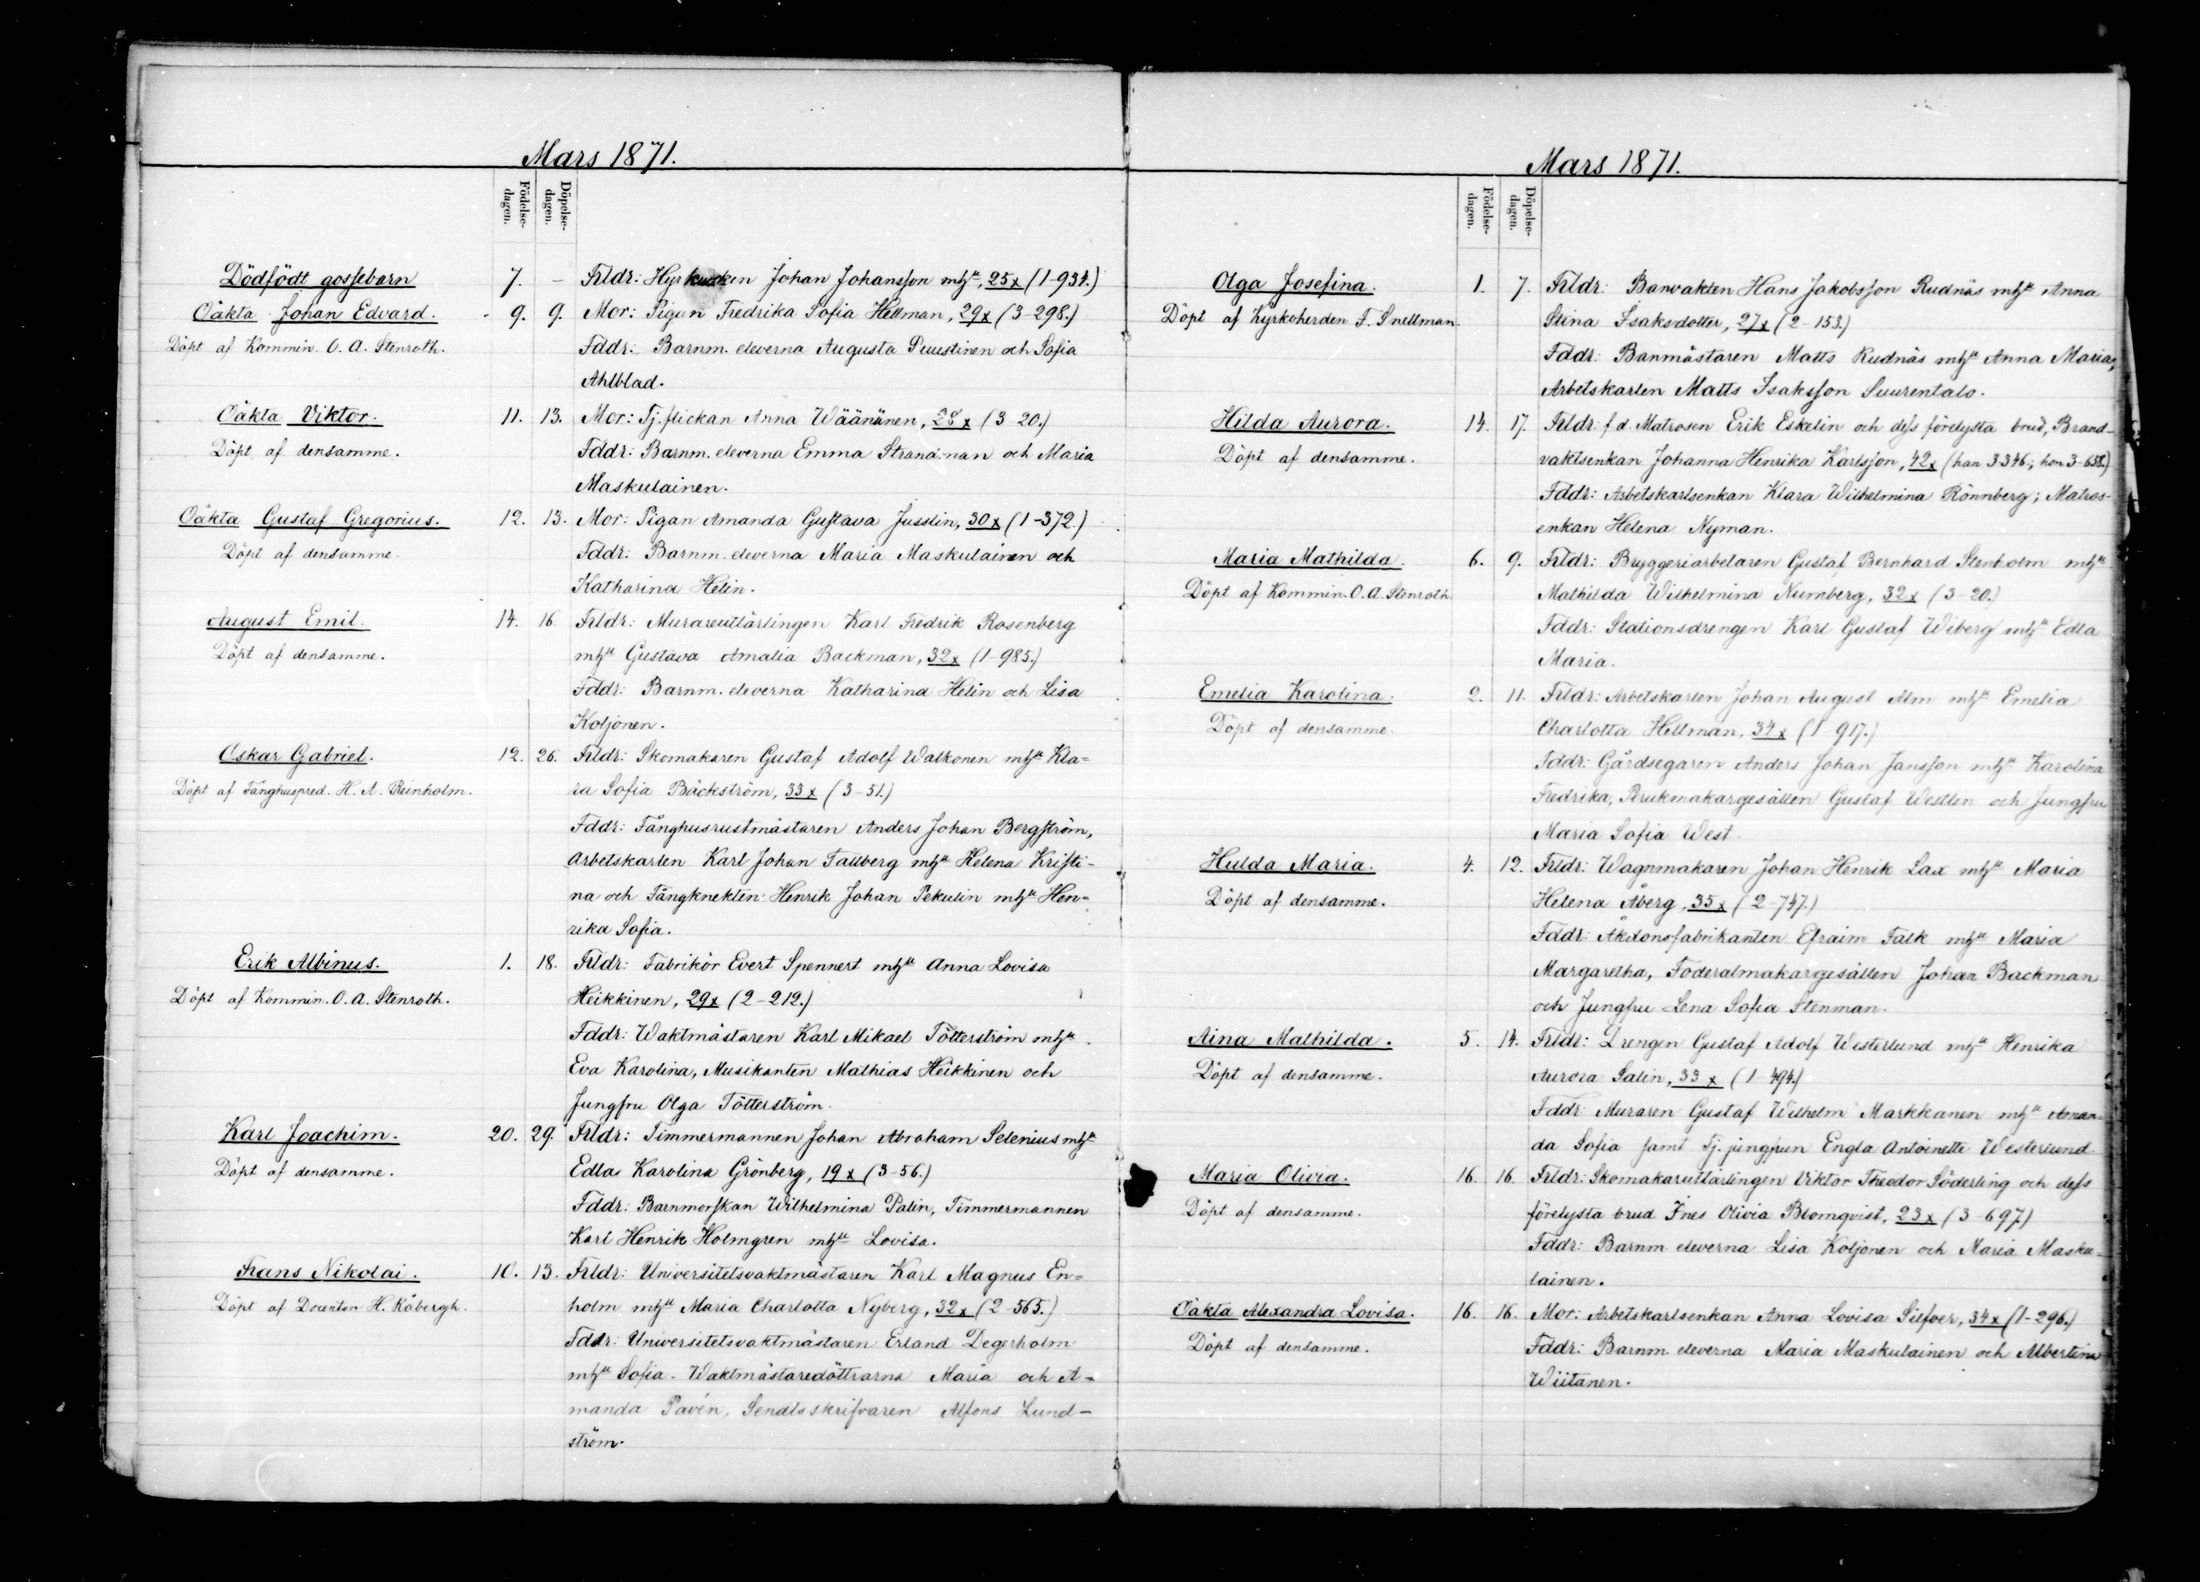 Mars 1871.
Födelse-
dagen.
Döpelse-
dagen.
Dödfödt gossebarn 7. – Frldr: Hyrkusken Johan Johansson mhu, 25x (1-934.)
Oäkta Johan Edvard. 9. 9. Mor: Pigan Fredrika Sofia Hellman, 29x (3-298.)
Döpt af Kommin. O. A. Stenroth. Fddr: Barnm. eleverna Augusta Puustinen och Sofia
Ahlblad.
Oäkta Viktor. 11. 13. Mor: Tj. flickan Anna Wäänänen, 28x (3-20.)
Döpt af densamme. Fddr: Barnm. eleverna Emma Strandman och Maria
Maskulainen.
Oäkta Gustaf Gregorius. 12. 13. Mor: Pigan Amanda Gustava Jusslin, 30x (1-372.)
Döpt af densamme. Fddr: Barnm. eleverna Maria Maskulainen och
Katharina Helin.
August Emil. 14. 16. Frldr: Murareutlärlingen Karl Fredrik Rosenberg
Döpt af densamme. mhu Gustava Amalia Backman, 32x (1-985.)
Fddr: Barnm. eleverna Katharina Helin och Lisa
Koljonen.
Oskar Gabriel. 12. 26. Frldr: Skomakaren Gustaf Adolf Walkonen mhu Kla=
Döpt af Fånghuspred. H. A. Reinholm. ra Sofia Bäckström, 33x (3-51.)
Fddr: Fånghusrustmästaren Anders Johan Bergström,
Arbetskarlen Karl Johan Tallberg mhu Helena Kristi-
na och Fångknekten Henrik Johan Pekulin mhu Hen-
rika Sofia.
Erik Albinus. 1. 18. Frldr: Fabrikör Evert Spennert mhu Anna Lovisa
Döpt af Kommin. O. A. Stenroth. Heikkinen, 29x (2-212.)
Fddr: Waktmästaren Karl Mikael Tötterström mhu
Eva Karolina, Musikanten Mathias Heikkinen och
Jungfru Olga Tötterström.
Karl Joachim. 20. 29. Frldr: Timmermannen Johan Abraham Selenius mhu
Döpt af densamme. Edla Karolina Grönberg, 19x (3-56.)
Fddr: Barnmorskan Wilhelmina Palin, Timmermannen
Karl Henrik Holmgren mhu Lovisa.
Frans Nikolai. 10. 13. Frldr: Universitetsvaktmästaren Karl Magnus En=
Döpt af Docenten H. Råbergh. holm mhu Maria Charlotta Nyberg, 32x (2-565.)
Fddr: Universitetsvaktmästaren Erland Degerholm
mhu Sofia. Waktmästaredöttrarna Maria och A=
manda Pavén, Senatsskrifvaren Alfons Lund-
ström.
Mars 1871.
Födelse-
dagen.
Döpelse-
dagen.
Olga Josefina. 1. 7. Frldr: Banvakten Hans Jakobsson Rudnäs mhu Anna
Döpt af Kyrkoherden F. Snellman. Stina Isaksdotter, 27x (2-153.)
Fddr: Banmästaren Matts Rudnäs mhu Anna Maria,
Arbetskarlen Matts Isaksson Suurentalo.
Hilda Aurora. 14. 17. Frldr: f.d. Matrosen Erik Eskelin och dess förelysta brud, Brand-
Döpt af densamme. vaktsenkan Johanna Henrika Karlsson, 42x (han 3-346; hon 3-658.)
Fddr: Arbetskarlsenkan Klara Wilhelmina Rönnberg; Matros-
enkan Helena Nyman.
Maria Mathilda. 6. 9. Frldr: Bryggeriarbetaren Gustaf Bernhard Stenholm mhu
Döpt af Kommin. O. A. Stenroth. Mathilda Wilhelmina Nurnberg, 32x (3-20.)
Fddr: Stationsdrengen Karl Gustaf Wiberg mhu Edla
Maria.
Emelia Karolina. 2. 11. Frldr: Arbetskarlen Johan August Alm mhu Emelia
Döpt af densamme. Charlotta Hellman, 34x (1-917.)
Fddr: Gårdsegaren Anders Johan Jansson mhu Karolina
Fredrika, Krukmakargesällen Gustaf Westlin och Jungfru
Maria Sofia West.
Hulda Maria. 4. 12. Frldr: Wagnmakaren Johan Henrik Lax mhu Maria
Döpt af densamme. Helena Åberg, 35x (2-747.)
Fddr: Åkdonsfabrikanten Efraim Falk mhu Maria
Margaretha, Foderalmakargesällen Johan Backman
och Jungfru Lena Sofia Stenman.
Aina Mathilda. 5. 14. Frldr: Drengen Gustaf Adolf Westerlund mhu Henrika
Döpt af densamme. Aurora Salin, 33x (1-494.)
Fddr: Muraren Gustaf Wilhelm Markkanen mhu Aman=
da Sofia samt Tj. jungfrun Engla Antoinette Westerlund.
Maria Olivia. 16. 16. Frldr: Skomakarutlärlingen Viktor Theodor Söderling och dess
Döpt af densamme. förelysta brud Ines Olivia Blomqvist, 23x (3-697)
Fddr: Barnm. eleverna Lisa Koljonen och Maria Masku-
lainen.
Oäkta Alexandra Lovisa. 16. 16. Mor: Arbetskarlsenkan Anna Lovisa Silfver, 34x (1-296.)
Döpt af densamme. Fddr: Barnm. eleverna Maria Maskulainen och Albertina
Wiitanen.